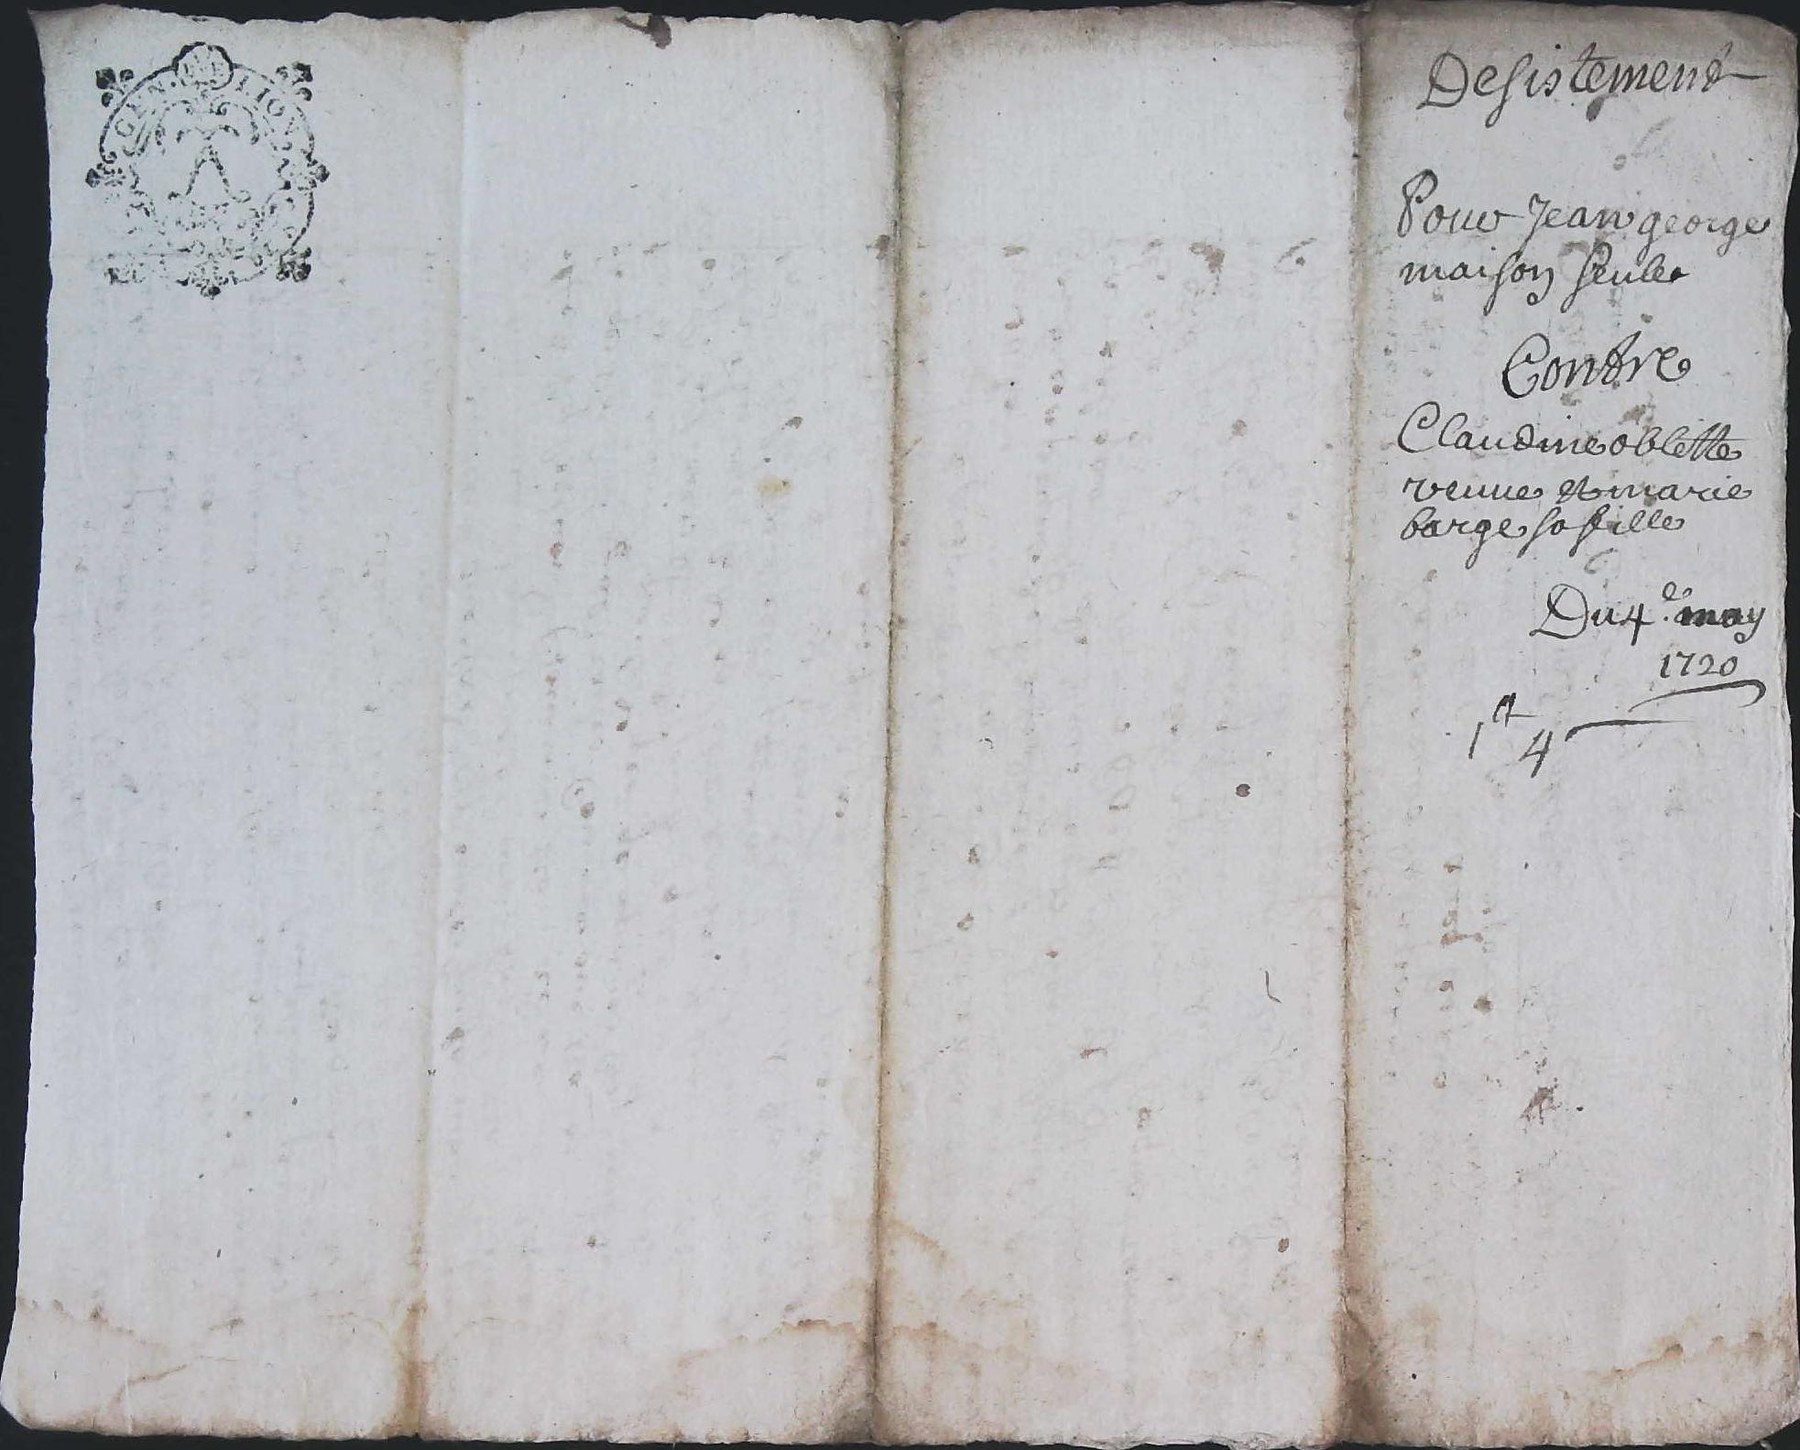 GEN. DE LION
Desistement
Pour Jean george
maison seule
Contre
Claudine oblette
veuue et marie
barge sa fille
Du 4e. may
1720
1tt 4